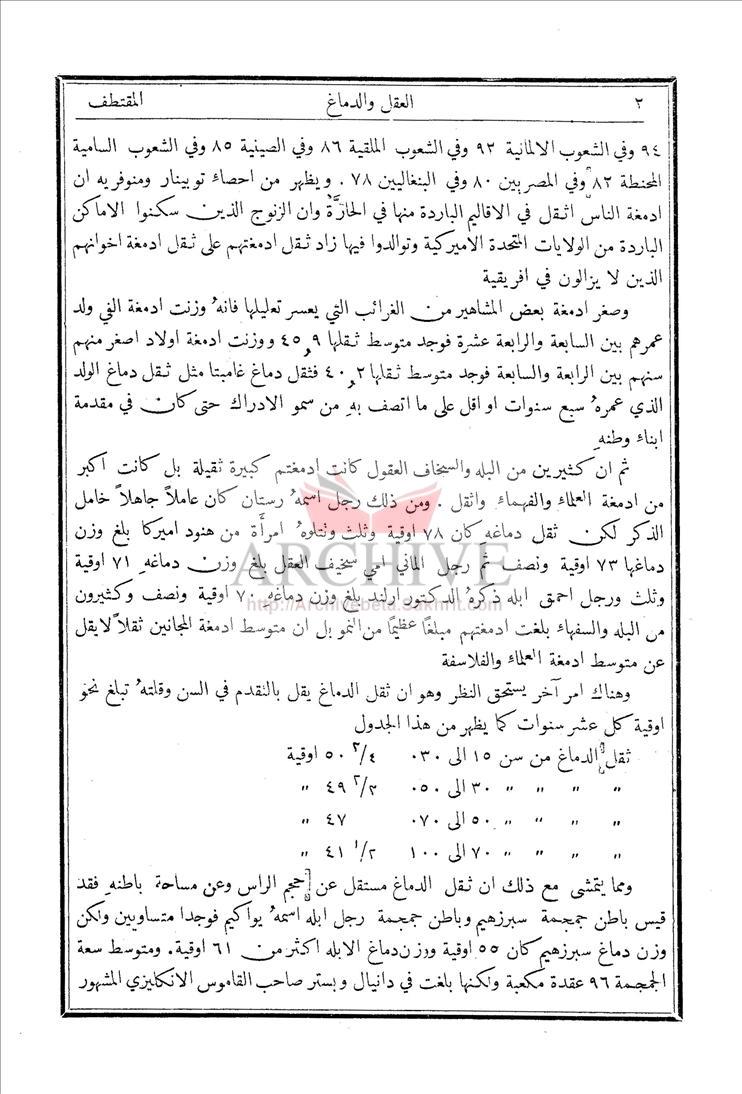 ٢ العقل والدماغ المقتطف
٩٤ وفي الشعوب الالمانية ٩٢ وفي الشعوب الملقية ٨٦ وفي الصينية ٨٥ وفي الشعوب السامية
المحنطة ٨٢ وفي المصريين ٨٠ وفي البنغاليين ٧٨ . ويظهر من احصاء توبينار ومنوفريه ان
ادمغة الناس اثقل في الاقاليم الباردة منها في الحارَّة وان الزنوج الذين سكنوا الاماكن
الباردة من الولايات المتحدة الاميركية وتوالدوا فيها زاد ثقل ادمغتهم على ثقل ادمغة اخوانهم
الذين لا يزالون في افريقية
وصغر ادمغة بعض المشاهير من الغرائب التي يعسر تعليلها فانهُ وزنت ادمغة الفي ولد
عمرهم بين السابعة والرابعة عشرة فوجد متوسط ثقلها ٤٥٫٩ ووزنت ادمغة اولاد اصغر منهم
سنهم بين الرابعة والسابعة فوجد متوسط ثقلها ٤٠٫٢ فثقل دماغ غامبتا مثل ثقل دماغ الولد
الذي عمرهُ سبع سنوات او اقل على ما اتصف بهِ من سمو الادراك حتى كان في مقدمة
ابناء وطنهِ
ثم ان كثيرين من البله والسخاف العقول كانت ادمغتهم كبيرة ثقيلة بل كانت اكبر
من ادمغة العلماء والفهماء واثقل . ومن ذلك رجل اسمهُ رستان كان عاملاً جاهلاً خامل
الذكر لكن ثقل دماغه كان ٧٨ اوقية وثلث وتتلوهُ امرأة من هنود اميركا بلغ وزن
دماغها ٧٣ اوقية ونصف ثم رجل الماني امي سخيف العقل بلغ وزن دماغهِ ٧١ اوقية
وثلث ورجل احمق ابله ذكرهُ الدكتور ارلند بلغ وزن دماغهِ ٧٠ اوقية ونصف وكثيرون
من البله والسفهاء بلغت ادمغتهم مبلغًا عظيمًا من النمو بل ان متوسط ادمغة المجانين ثقلاً لا يقل
عن متوسط ادمغة العلماء والفلاسفة
وهناك امر آخر يستحق النظر وهو ان ثقل الدماغ يقل بالتقدم في السن وقلتهُ تبلغ نحو
اوقية كل عشر سنوات كما يظهر من هذا الجدول
ثقل الدماغ من سن ١٥ الى ٣٠. ٥٠ ٢/٤ اوقية
" " " " ٣٠ الى ٥٠. ٤٩ ٢/٣ "
" " " " ٥٠ الى ٧٠. ٤٧ "
" " " " ٧٠ الى ١٠٠ ٤١ ١/٢ "
ومما يتمشى مع ذلك ان ثقل الدماغ مستقل عن حجم الراس وعن مساحة باطنهِ فقد
قيس باطن جمجمة سبرزهيم وباطن جمجمة رجل ابله اسمهُ يواكيم فوجدا متساويين ولكن
وزن دماغ سبرزهيم كان ٥٥ اوقية ووزن دماغ الابله اكثر من ٦١ اوقية. ومتوسط سعة
الجمجمة ٩٦ عقدة مكعبة ولكنها بلغت في دانيال وبستر صاحب القاموس الانكليزي المشهور
ARCHIVE
http://Archivebeta.Sakhrit.com